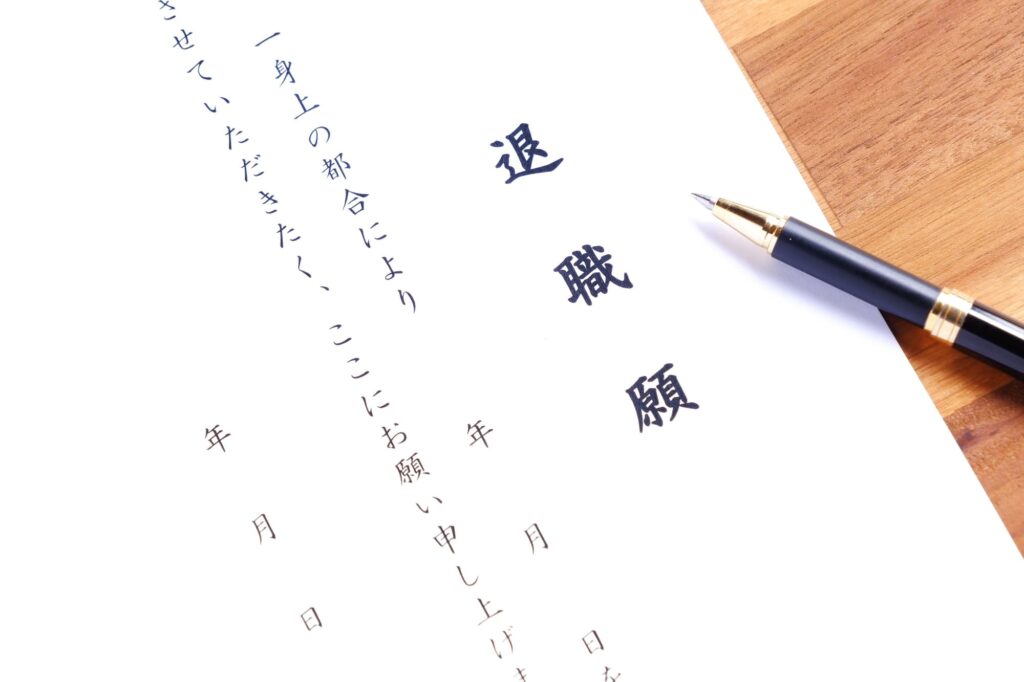 退職願
一身上の都合により　年　月　日を
させていただきたく、ここにお願い申し上げま
年　月　日